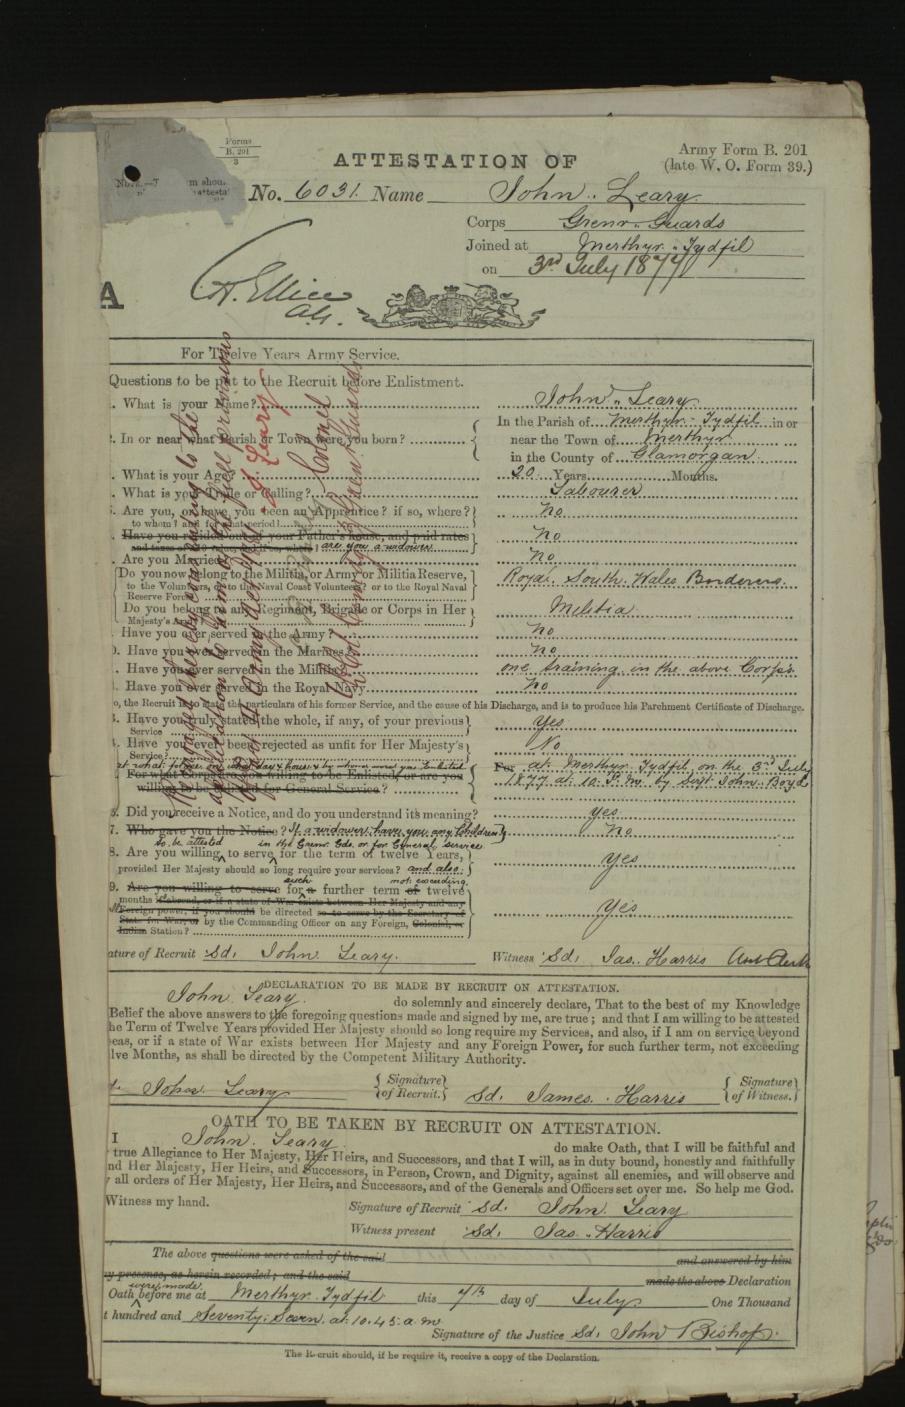 Forms
B. 201
3
Army Form B. 201
ATTESTATION OF
(late W. O. Form 39.)
No. 6031. Name John Leary
Corps Grenr. Guards
Joined at Merthyr Tydfil
on 3rd July 1877
A
For Twelve Years Army Service.
Questions to be put to the Recruit before Enlistment.
. What is your Name? John Leary
In the Parish of Merthyr Tydfil in or
. In or near what Parish or Town were you born? near the Town of Merthyr
in the County of Glamorgan
. What is your Age? 20 Years Months.
. What is your Trade or Calling? Labourer
. Are you, or have you been an Apprentice? if so, where? No
to whom? and for what period?
. Have you resided out of your Father's house, and paid rates No
are you a widower
. Are you Married No
Do you now belong to the Militia, or Army or Militia Reserve, Royal South Wales Borderers
to the Volunteers, or to the Naval Coast Volunteers? or to the Royal Naval
Reserve Force
Do you belong to any Regiment, Brigade or Corps in Her Militia
Majesty's Army
. Have you ever served in the Army? No
. Have you ever served in the Marines? No
. Have you ever served in the Militia one training in the above Corps
. Have you ever served in the Royal Navy No
o, the Recruit is to state the particulars of his former Service, and the cause of his Discharge, and is to produce his Parchment Certificate of Discharge.
. Have you truly stated the whole, if any, of your previous Yes
Service
. Have you ever been rejected as unfit for Her Majesty's No
Service?
For at Merthyr Tydfil, on the 3rd July
. For what Corps are you willing to be Enlisted, or are you 1877 at 10 by Sergt John Boyd
willing to be Enlisted for General Service?
. Did you receive a Notice, and do you understand its meaning? yes
7. Who gave you the Notice? If a widower, have you any Children No
to be attested in the Grenr. Gds. or for General Service
8. Are you willing to serve for the term of twelve Years, yes
provided Her Majesty should so long require your services? and also
such not exceeding
9. Are you willing to serve for a further term of twelve
months if abroad, or if a state of War exists between Her Majesty and any yes
Foreign power, if you should be directed so to serve by the Secretary of
State for War, or by the Commanding Officer on any Foreign, Colonial, or
Indian Station?
ature of Recruit Sd. John Leary. Witness Sd. Jas. Harris
DECLARATION TO BE MADE BY RECRUIT ON ATTESTATION.
John Leary do solemnly and sincerely declare, That to the best of my Knowledge
Belief the above answers to the foregoing questions made and signed by me, are true; and that I am willing to be attested
he Term of Twelve Years provided Her Majesty should so long require my Services, and also, if I am on service beyond
eas, or if a state of War exists between Her Majesty and any Foreign Power, for such further term, not exceeding
lve Months, as shall be directed by the Competent Military Authority.
d. John Leary Signature of Recruit. Sd. James Harris Signature of Witness.
OATH TO BE TAKEN BY RECRUIT ON ATTESTATION.
I John Leary do make Oath, that I will be faithful and
true Allegiance to Her Majesty, Her Heirs, and Successors, and that I will, as in duty bound, honestly and faithfully
nd Her Majesty, Her Heirs, and Successors, in Person, Crown, and Dignity, against all enemies, and will observe and
y all orders of Her Majesty, Her Heirs, and Successors, and of the Generals and Officers set over me. So help me God.
Witness my hand. Signature of Recruit Sd. John Leary
Witness present Sd. Jas. Harris
The above questions were asked of the said and answered by him
my presence, as herein recorded; and the said made the above Declaration
were made
Oath before me at Merthyr Tydfil this 4th day of July One Thousand
t hundred and Seventy Seven at 10.45 a.m
Signature of the Justice Sd. John Bishop.
The Recruit should, if he require it, receive a copy of the Declaration.